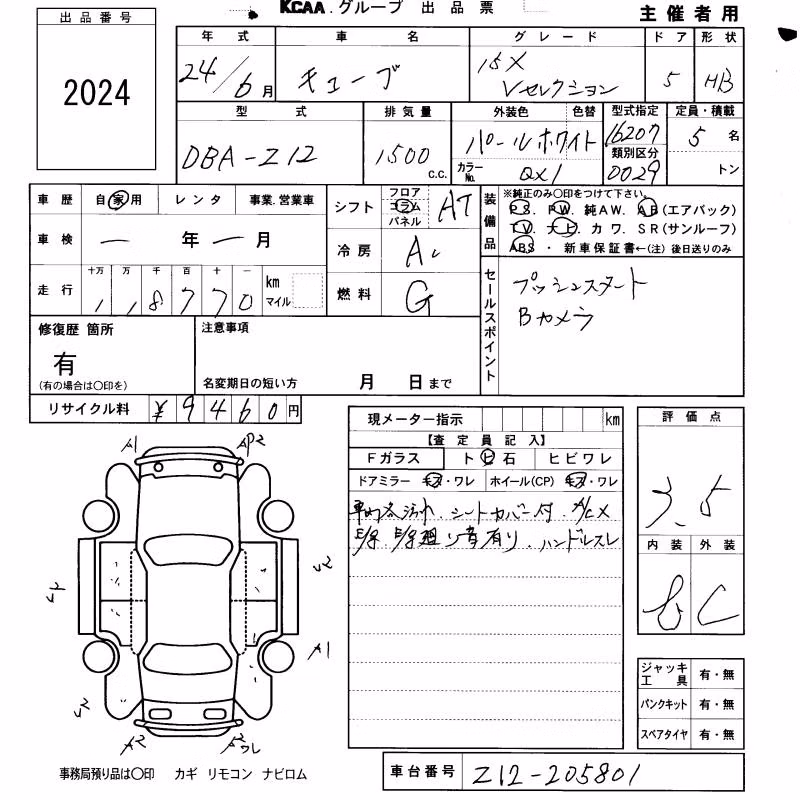 KCAA.グループ 出品票
主催者用
出品番号
2024
年式 車名 グレード ドア 形状
24/6月 キューブ 15X Vセレクション 5 HB
型式 排気量 外装色 色替 型式指定 定員・積載
DBA-Z12 1500 c.c. パールホワイト 16207 5名
カラーNo. QX1 類別区分 0029 トン
車歴 自家用 レンタ 事業.営業車
シフト フロア コラム パネル AT
装備品 ※純正のみ○印をつけて下さい。
PS. PW. 純AW. AB(エアバック)
TV. ナビ. カワ. SR(サンルーフ)
ABS・新車保証書←(注)後日送りのみ
車検 一年一月
冷房 AC
走行 十万 万 千 百 十 一 km マイル
118770
燃料 G
セールスポイント
プッシュスタート
Bカメラ
修復歴 箇所
有
(有の場合は○印を)
注意事項
名変期日の短い方 月 日まで
リサイクル料 ¥9460円
現メーター指示 km
【査定員記入】
Fガラス トビ石 ヒビワレ
ドアミラー キズ・ワレ ホイール(CP) キズ・ワレ
シートカバー付
有り.ハンドルスレ
評価点
3.5
内装 外装
C
ジャッキ工具 有・無
パンクキット 有・無
スペアタイヤ 有・無
A1 AP2
A1
A2
事務局預り品は○印 カギ リモコン ナビロム
車台番号 Z12-205801